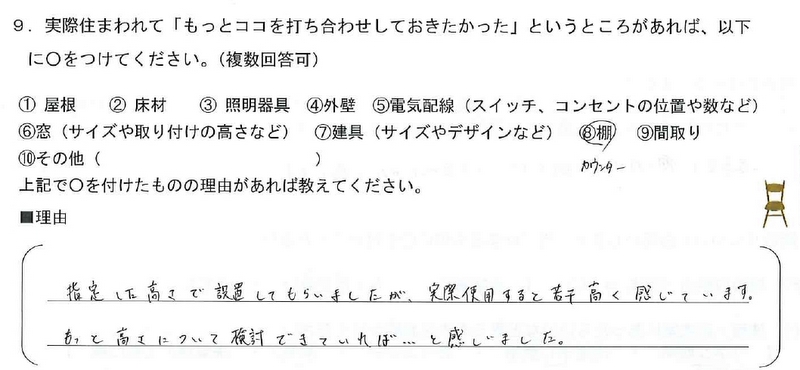 ９．実際住まわれて「もっとココを打ち合わせしておきたかった」というところがあれば、以下
に〇をつけてください。（複数回答可）
① 屋根　② 床材　③ 照明器具　④外壁　⑤電気配線（スイッチ、コンセントの位置や数など）
⑥窓（サイズや取り付けの高さなど）　⑦建具（サイズやデザインなど）　⑧棚　⑨間取り
カウンター
⑩その他（　　　　　　　　　　　　）
上記で〇を付けたものの理由があれば教えてください。
■理由
指定した高さで設置してもらいましたが、実際使用すると若干高く感じています。
もっと高さについて検討できていれば…と感じました。